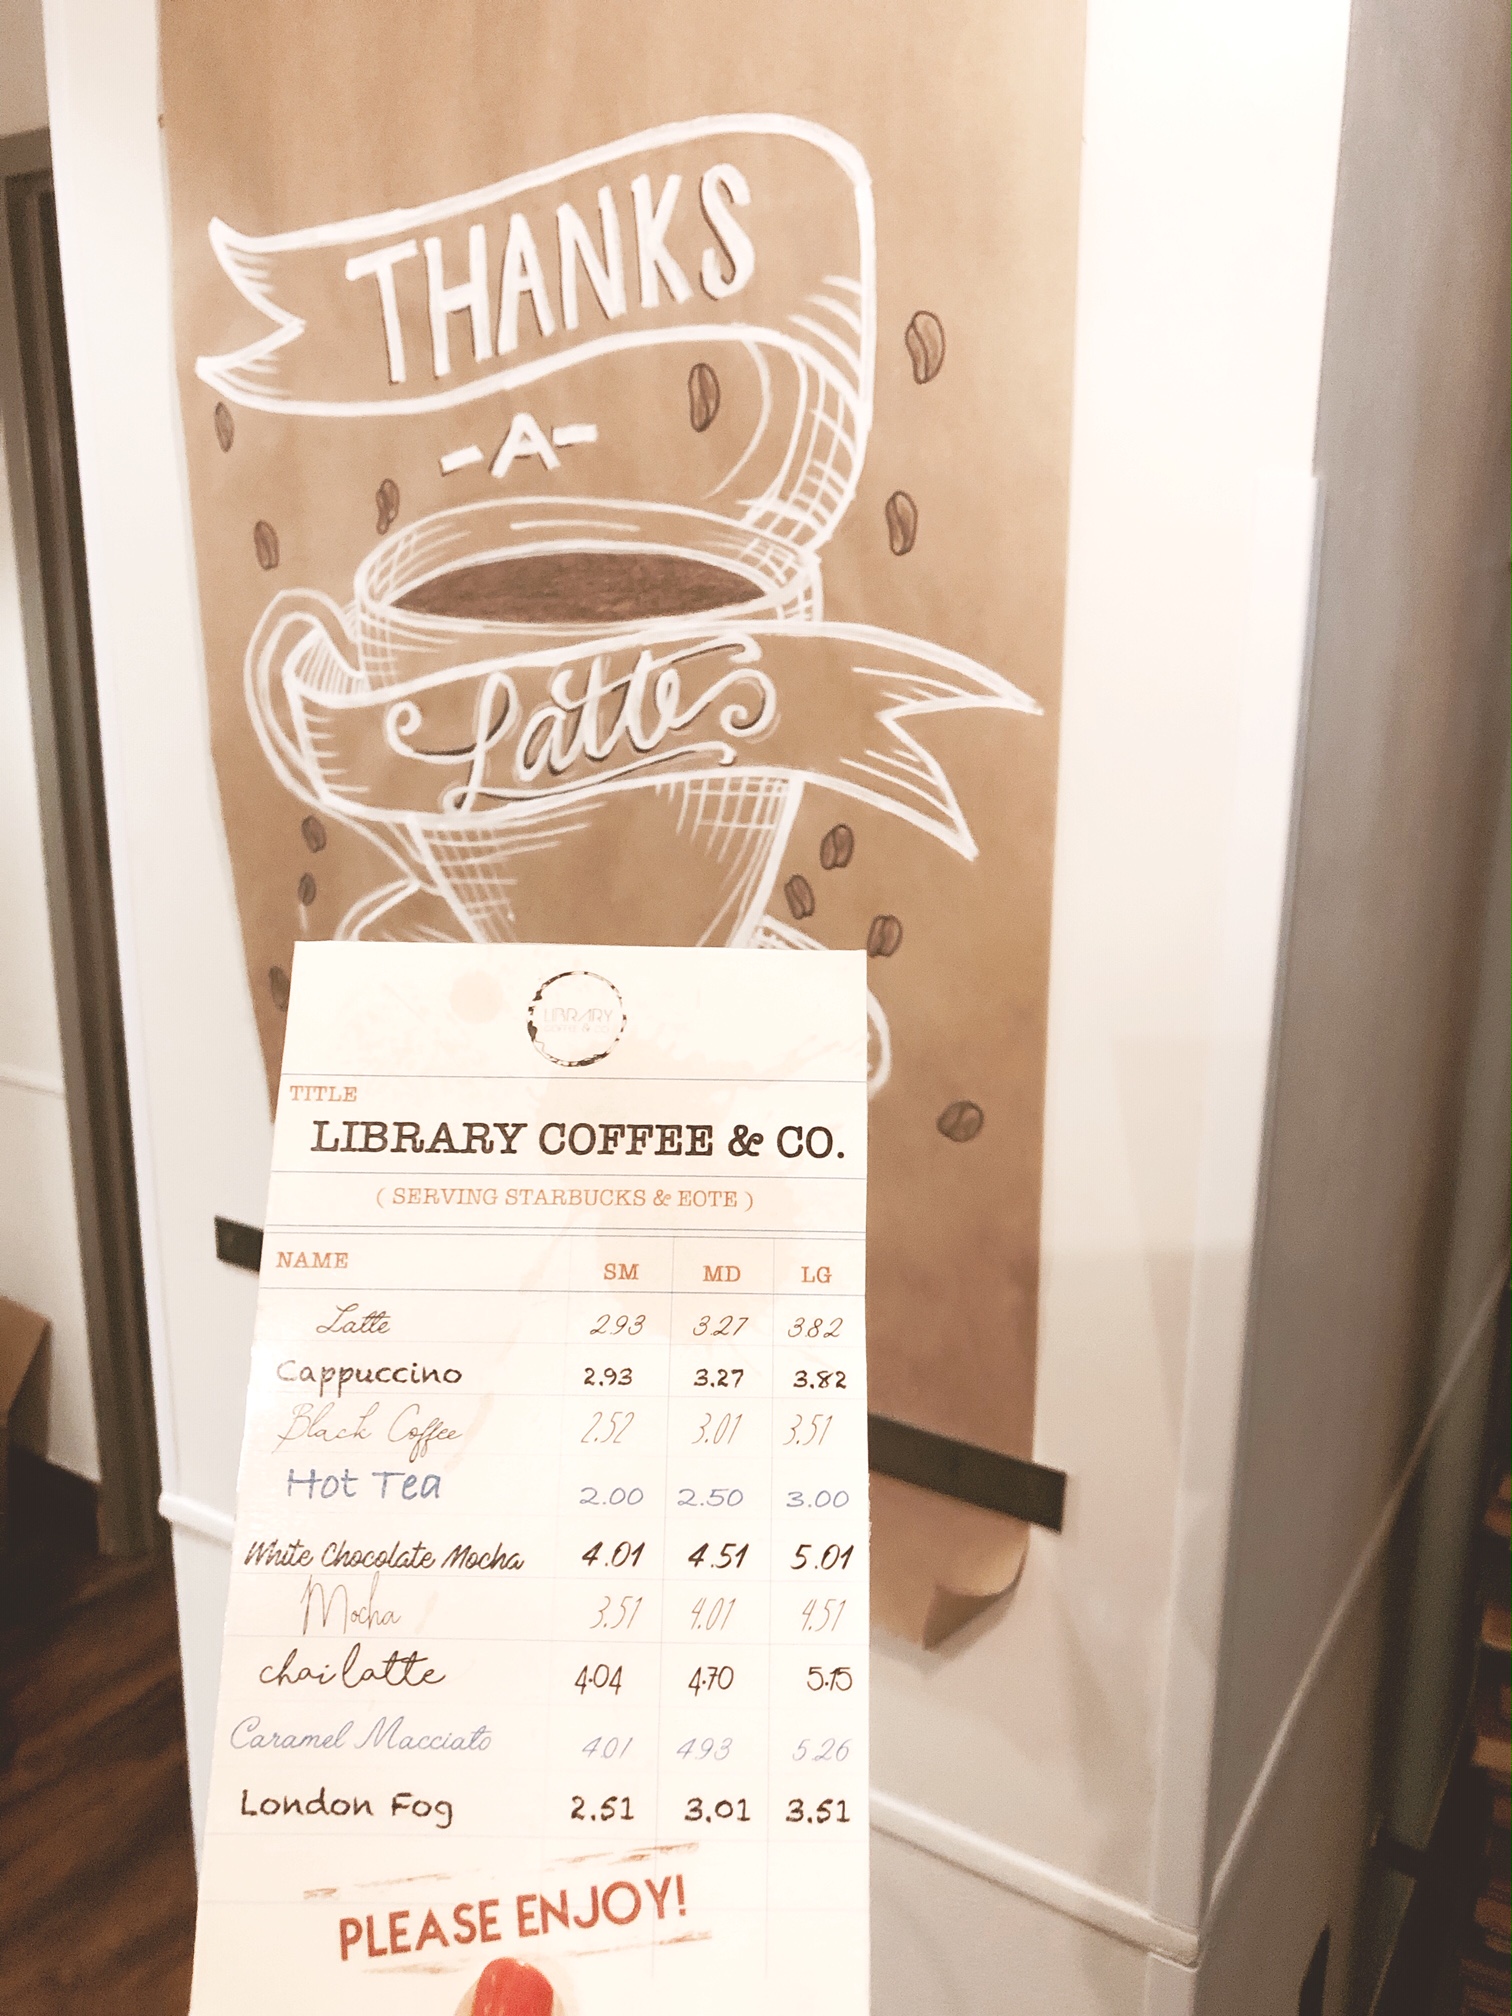 THANKS
-A-
Latte
LIBRARY
COFFEE & CO.
TITLE
LIBRARY COFFEE & CO.
( SERVING STARBUCKS & EOTE )
NAME SM MD LG
Latte 2.93 3.27 3.82
Cappuccino 2.93 3.27 3.82
Black Coffee 2.52 3.01 3.51
Hot Tea 2.00 2.50 3.00
White Chocolate Mocha 4.01 4.51 5.01
Mocha 3.51 4.01 4.51
chai latte 4.04 4.70 5.15
Caramel Macciato 4.01 4.93 5.26
London Fog 2.51 3.01 3.51
PLEASE ENJOY!